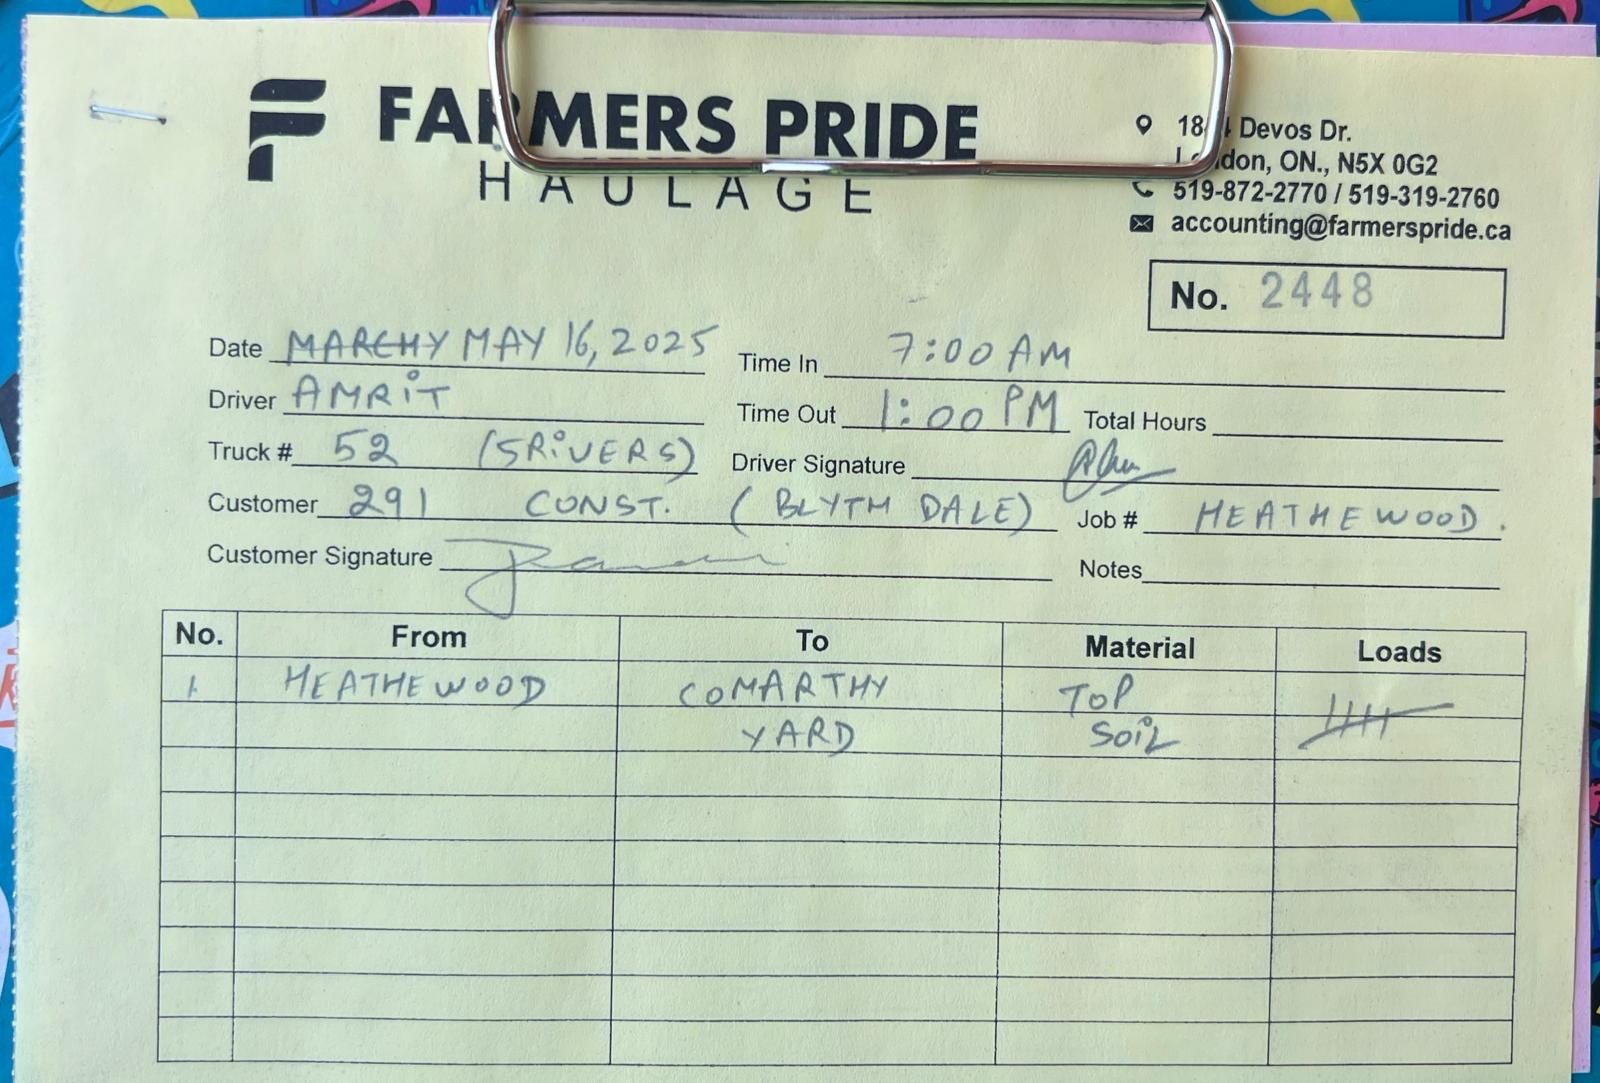 FARMERS PRIDE
HAULAGE
Devos Dr.
London, ON., N5X 0G2
519-872-2770 / 519-319-2760
accounting@farmerspride.ca
No. 2448
Date MARCHY MAY 16, 2025
Time In 7:00 AM
Driver AMRiT
Time Out 1:00 PM Total Hours
Truck # 52 (5RiVERS)
Driver Signature
Customer 291 CONST. (BLYTH DALE) Job # HEATHEWOOD.
Customer Signature
Notes
No. From To Material Loads
1. HEATHEWOOD COMARTHY TOP
YARD SOiL